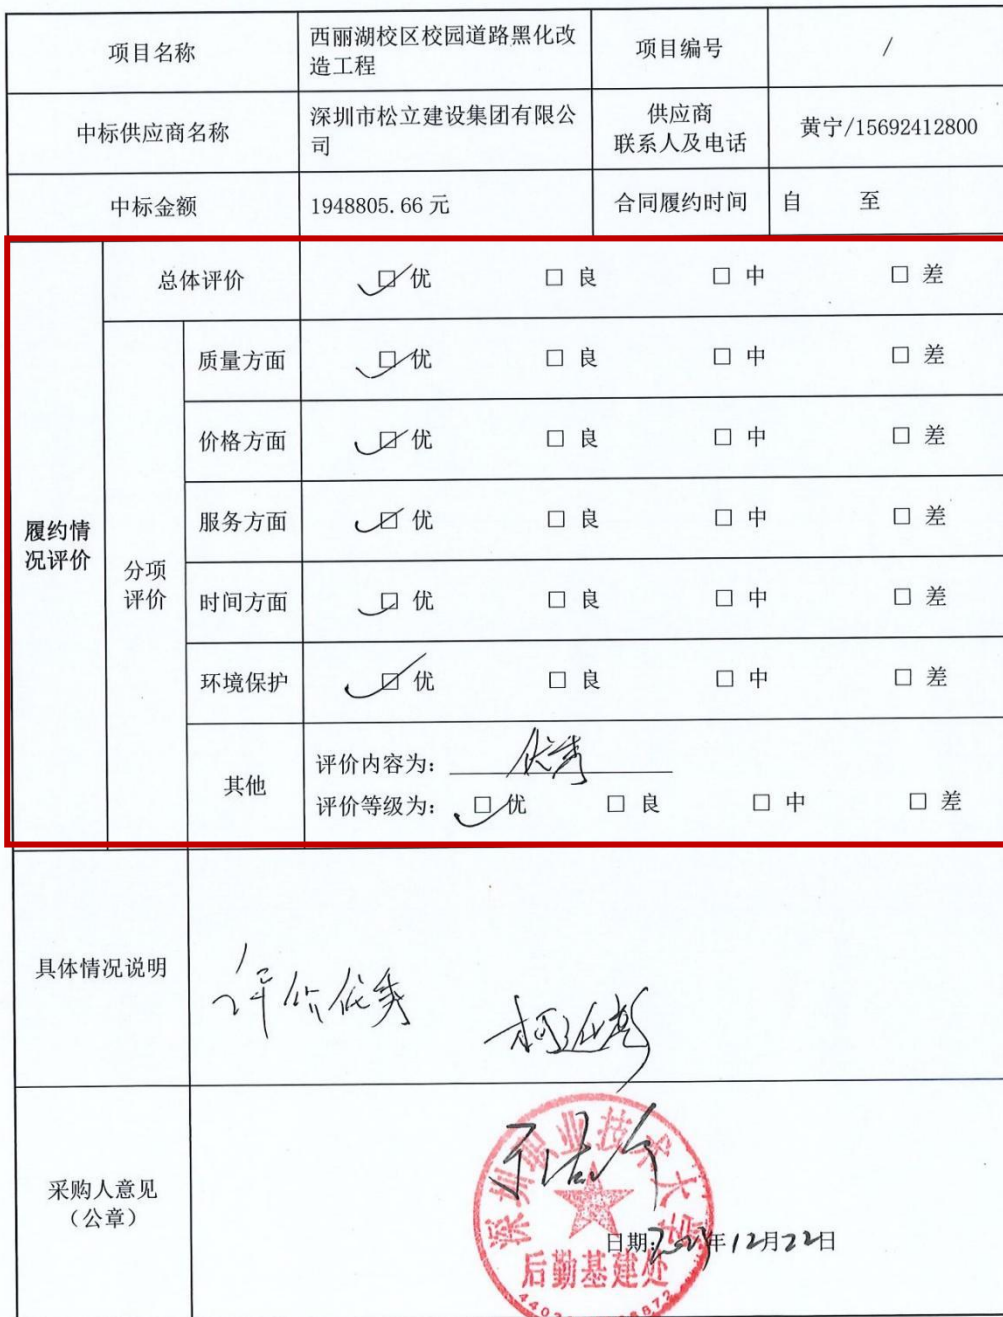 项目名称
西丽湖校区校园道路黑化改
造工程
项目编号
/
中标供应商名称
深圳市松立建设集团有限公
司
供应商
联系人及电话
黄宁/15692412800
中标金额
1948805.66元
合同履约时间
自 至
履约情
况评价
总体评价
□优 □良 □中 □差
分项
评价
质量方面
□优 □良 □中 □差
价格方面
□优 □良 □中 □差
服务方面
□优 □良 □中 □差
时间方面
□优 □良 □中 □差
环境保护
□优 □良 □中 □差
其他
评价内容为: 优秀
评价等级为: □优 □良 □中 □差
具体情况说明
评价优秀
采购人意见
(公章)
深圳职业技术大学
后勤基建处
日期: 年12月22日